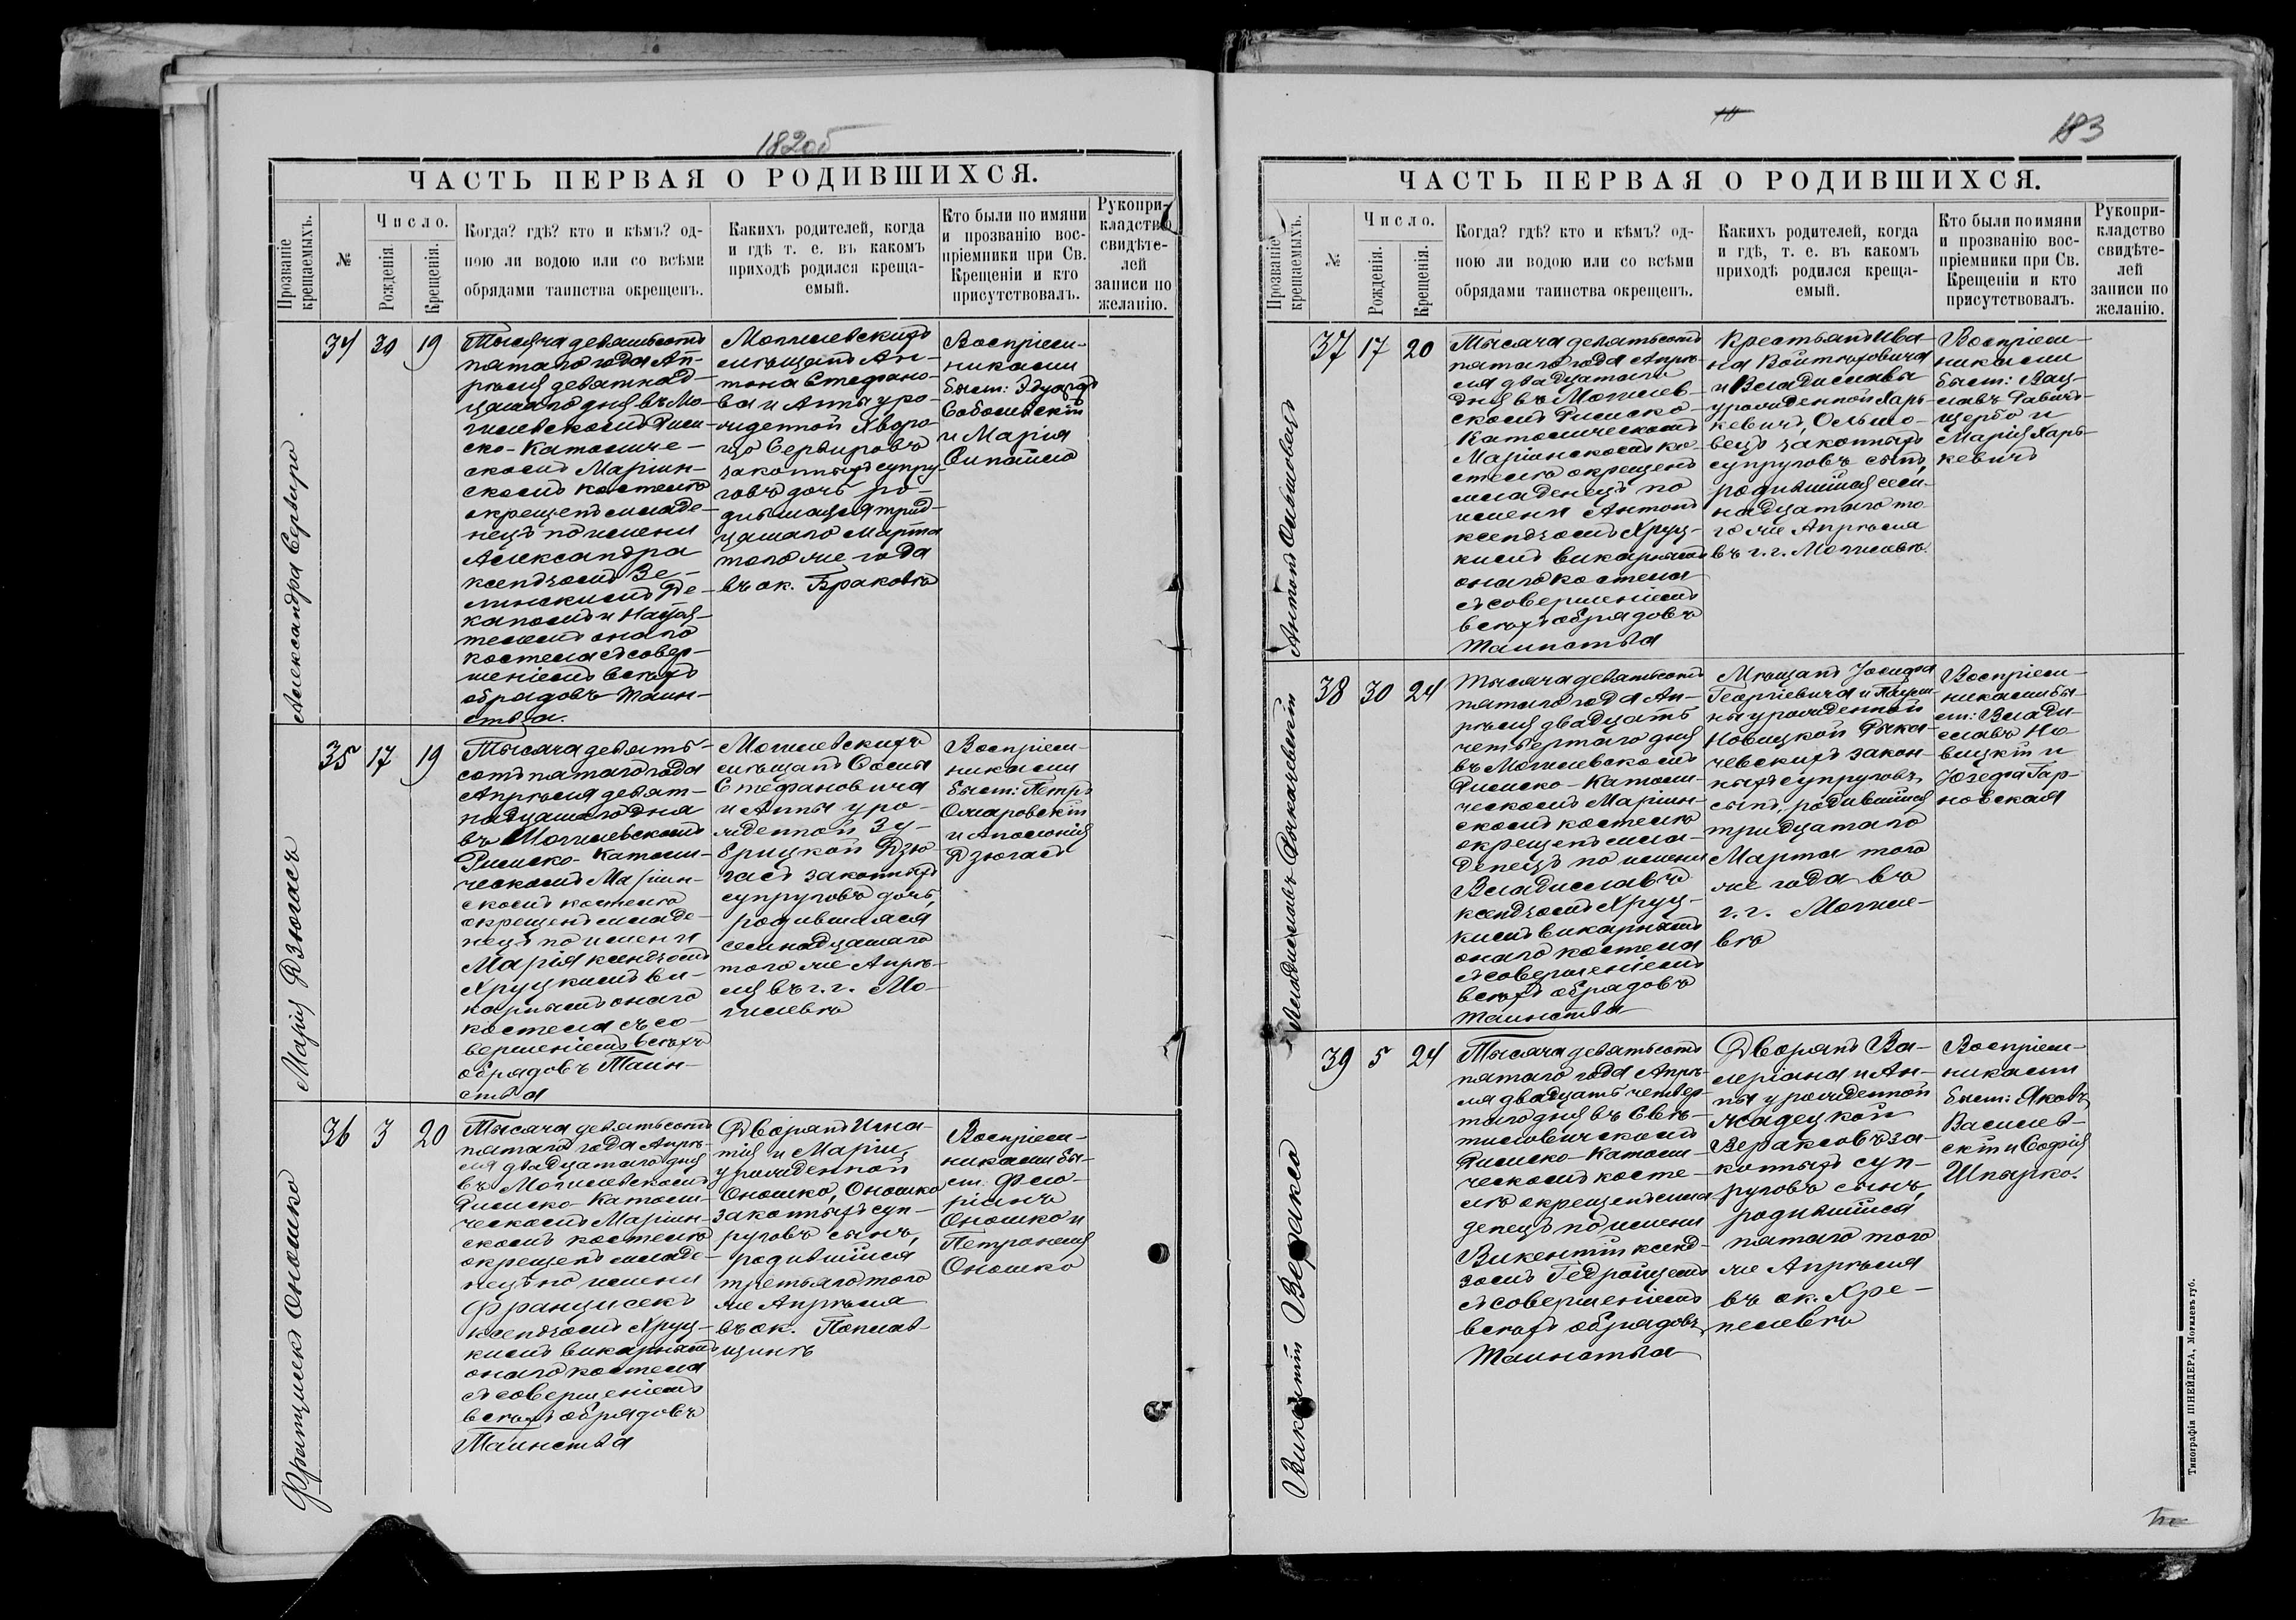 182об
ЧАСТЬ ПЕРВАЯ О РОДИВШИХСЯ.
Прозваніе крещаемыхъ.
№
Число.
Рожденія.
Крещенія.
Когда? гдѣ? кто и кѣмъ? од-
ною ли водою или со всѣми
обрядами таинства окрещенъ.
Какихъ родителей, когда
и гдѣ т. е. въ какомъ
приходѣ родился креща-
емый.
Кто были по имяни
и прозванію вос-
пріемники при Св.
Крещеніи и кто
присутствовалъ.
Рукопри-
кладство
свидѣте-
лей
записи по
желанію.
Александра Сервиро
34
30
19
Тысяча девятьсотъ
пятаго года Ап-
рѣля девятнад-
цатаго дня въ Мо-
гилевскомъ Рим-
ско-Католиче-
скомъ Маріин-
скомъ костелѣ
окрещенъ младе-
нецъ по имени
Александра
ксендзомъ Зе-
линскимъ Де-
каномъ и Настоя-
телемъ онаго
костела съ совер-
шеніемъ всѣхъ
обрядовъ Таин-
ства.
Могилевскихъ
мѣщанъ Ан-
тона Стефано-
ва и Анны уро-
жденной Хворо-
що Сервировъ
законныхъ супру-
говъ дочь ро-
дившаяся трид-
цатаго Марта
того же года
въ ок. Браковѣ
Воспріем-
никами
были: Эдуардъ
Соболевскій
и Марія
35
17
19
Марія Дзюгасъ
Тысяча девять-
сотъ пятаго года
Апрѣля девят-
надцатаго дня
въ Могилевскомъ
Римско-Католи-
ческомъ Маріин-
скомъ костелѣ
окрещенъ младе-
нецъ по имени
Марія ксендзомъ
Хруцкимъ ви-
карнымъ онаго
костела съ со-
вершеніемъ всѣхъ
обрядовъ Таин-
ства
Могилевскихъ
мѣщанъ
Стефановича
и Анны уро-
жденной Зу-
брицкой Дзю
гасъ законныхъ
супруговъ дочь,
родившаяся
семнадцатаго
того же Апрѣ-
ля въ г. г. Мо-
гилевѣ
Воспріем-
никами
были: Петръ
Омаровскій
и Аполонія
Дзюгасъ
Францишекъ Оношко
36
3
20
Тысяча девятьсотъ
пятаго года Апрѣ-
ля двадцатаго дня
въ Могилевскомъ
Римско-Католи-
ческомъ Маріин-
скомъ костелѣ
окрещенъ младе-
нецъ по имени
Францисекъ
ксендзомъ Хруц-
кимъ викарнымъ
онаго костела
съ совершеніемъ
всѣхъ обрядовъ
Таинства
Дворянъ Игна-
тія и Маріи,
урожденной
Оношко, Оношко
законныхъ суп-
руговъ сынъ,
родившійся
третьяго того
же Апрѣля
въ ок. Поплав-
щинѣ
Воспріем-
никами бы-
ли: Фло-
ріанъ
Оношко и
Петронеля
Оношко
183
ЧАСТЬ ПЕРВАЯ О РОДИВШИХСЯ.
Прозваніе крещаемыхъ.
№
Число.
Рожденія.
Крещенія.
Когда? гдѣ? кто и кѣмъ? од-
ною ли водою или со всѣми
обрядами таинства окрещенъ.
Какихъ родителей, когда
и гдѣ, т. е. въ какомъ
приходѣ родился креща-
емый.
Кто были по имяни
и прозванію вос-
пріемники при Св.
Крещеніи и кто
присутствовалъ.
Рукопри-
кладство
свидѣте-
лей
записи по
желанію.
Антонъ Ольшовецъ
37
17
20
Тысяча девятьсотъ
пятаго года Апрѣ-
ля двадцатаго
дня въ Могилев-
скомъ Римско-
Католическомъ
Маріинскомъ ко-
стелѣ окрещенъ
младенецъ по
имени Антонъ
ксендзомъ Хруц-
кимъ викарнымъ
онаго костела
съ совершеніемъ
всѣхъ обрядовъ
Таинства
Крестьянъ Ива
на Войтѣховича
и Владиславы
урожденной Харь
кевичъ, Ольшо-
вецъ законныхъ
супруговъ сынъ,
родившійся сем-
надцатаго то
го же Апрѣля
въ г. г. Могилевѣ.
Воспріем-
никами
были: Вац-
лавъ Равичъ-
Щербо и
Марія Харь-
кевичъ
Владиславъ Рыкачевскій
38
30
24
Тысяча девятьсотъ
пятаго года Ап-
рѣля двадцать
четвертаго дня
въ Могилевскомъ
Римско-Католи-
ческомъ Маріин-
скомъ костелѣ
окрещенъ мла-
денецъ по имени
Владиславъ
ксендзомъ Хруц-
кимъ викарнымъ
онаго костела
съ совершеніемъ
всѣхъ обрядовъ
Таинства
Мѣщанъ Іосифа
Георгіевича и Паули-
ны урожденной
Новицкой Рыка-
чевскихъ закон-
ныхъ супруговъ
сынъ, родившійся
тридцатаго
Марта того
же года въ
г. г. Могиле-
вѣ
Воспріем-
никами бы-
ли: Влади-
славъ Но-
вицкій и
Юзефа Гар-
новская
Викентій Веракса
39
5
24
Тысяча девятьсотъ
пятаго года Апрѣ-
ля двадцать четвер-
таго дня въ Свя-
тиловичскомъ
Римско-Католи-
ческомъ косте-
лѣ окрещенъ мла
денецъ по имени
Викентій ксенд-
зомъ Гедройцемъ
съ совершеніемъ
всѣхъ обрядовъ
Таинства
Дворянъ Ва-
леріана и Ан-
ны урожденной
Жадецкой
Вераксовъ за-
конныхъ суп-
руговъ сынъ,
родившійся
пятаго того
же Апрѣля
въ ок. Хре-
пелевѣ
Воспріем-
никами
были: Яковъ
Василев-
скій и Софія
Шпырко.
Типографія ШНЕЙДЕРА, Могилевъ губ.